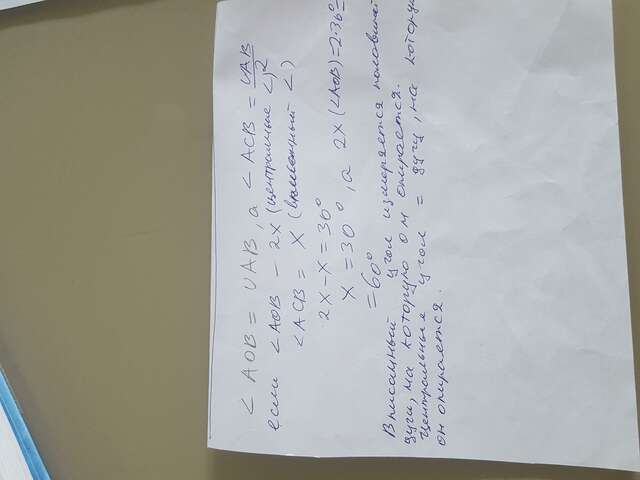 ∠AOB = ∪AB, а ∠ACB = ∪AB/2
если ∠AOB - 2x (центральные ∠),
∠ACB = x (вписанный ∠)
2x-x=30°
x=30°, а 2x(∠AOB)=2·30°=
=60°
Вписанный угол измеряется половиной
дуги, на которую он опирается.
Центральные угол = дугу, на котору
он опирается.